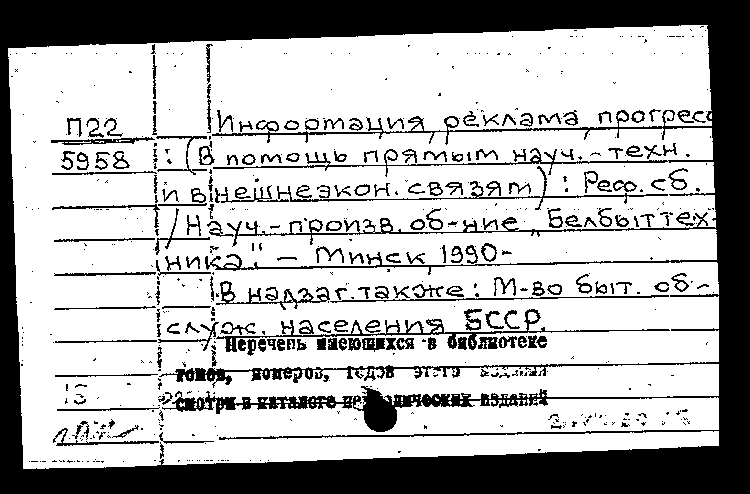 П22 Информация, реклама, прогресс
5958 : (В помощь прямым науч.-техн.
и внешнеэкон. связям) : Реф. сб.
/ Науч.-произв. об-ние „Белбыттех-
ника". – Минск, 1990-
В надзаг. также: М-во быт. об-
служ. населения БССР.
Перечень имеющихся в библиотеке
томов, номеров, годов этого издания
смотри в каталоге периодических изданий